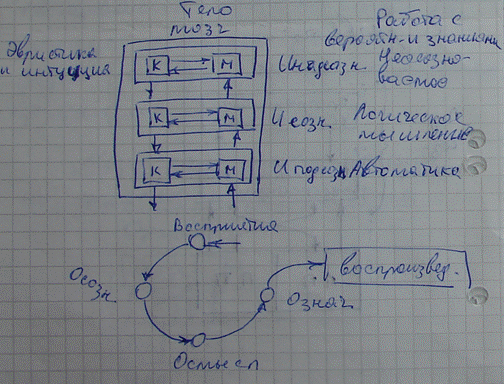 Тело
мозг
Эвристика
и интуиция
Работа с
вероятн-и знаниями
К М
И надсозн. Неосозно-
ваемое
К М
И созн. Логическое
мышление
К М
И подсозн Автоматика
Восприятия
Осозн.
Осмысл
Означ.
воспроизвед.